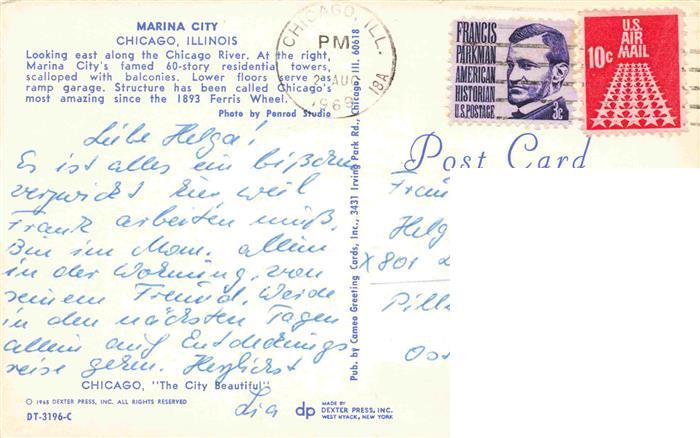 MARINA CITY
CHICAGO, ILLINOIS
Looking east along the Chicago River. At the right,
Marina City's famed 60-story residential towers,
scalloped with balconies. Lower floors serve as
ramp garage. Structure has been called Chicago's
most amazing since the 1893 Ferris Wheel.
Photo by Penrod Studio
CHICAGO, ILL.
PM
25 AUG
1969
18A
FRANCIS
PARKMAN
AMERICAN
HISTORIAN
U.S. POSTAGE 3c
U.S.
AIR
MAIL
10c
Post Card
Liebe Helga!
Es ist alles ein bißchen
verzwickt hier weil
Frank arbeiten muß.
Bin im Mom. allein
in der Wohnung, von
seinem Freund. Werde
in den nächsten Tagen
allein auf Entdeckungs
reise gehen. Herzlichst
Lia
Helg
X801
Pill
Ost
Pub. by Cameo Greeting Cards, Inc., 3431 Irving Park Rd., Chicago, Ill. 60618
CHICAGO, "The City Beautiful"
© 1965 DEXTER PRESS, INC. ALL RIGHTS RESERVED
DT-3196-C
dp
MADE BY
DEXTER PRESS, INC.
WEST NYACK, NEW YORK